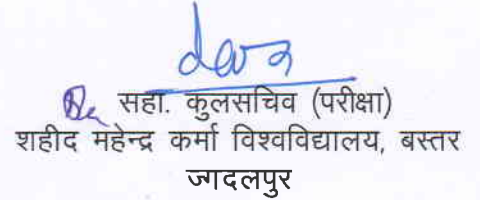 सहा. कुलसचिव (परीक्षा)
शहीद महेन्द्र कर्मा विश्वविद्यालय, बस्तर
ज्गदलपुर